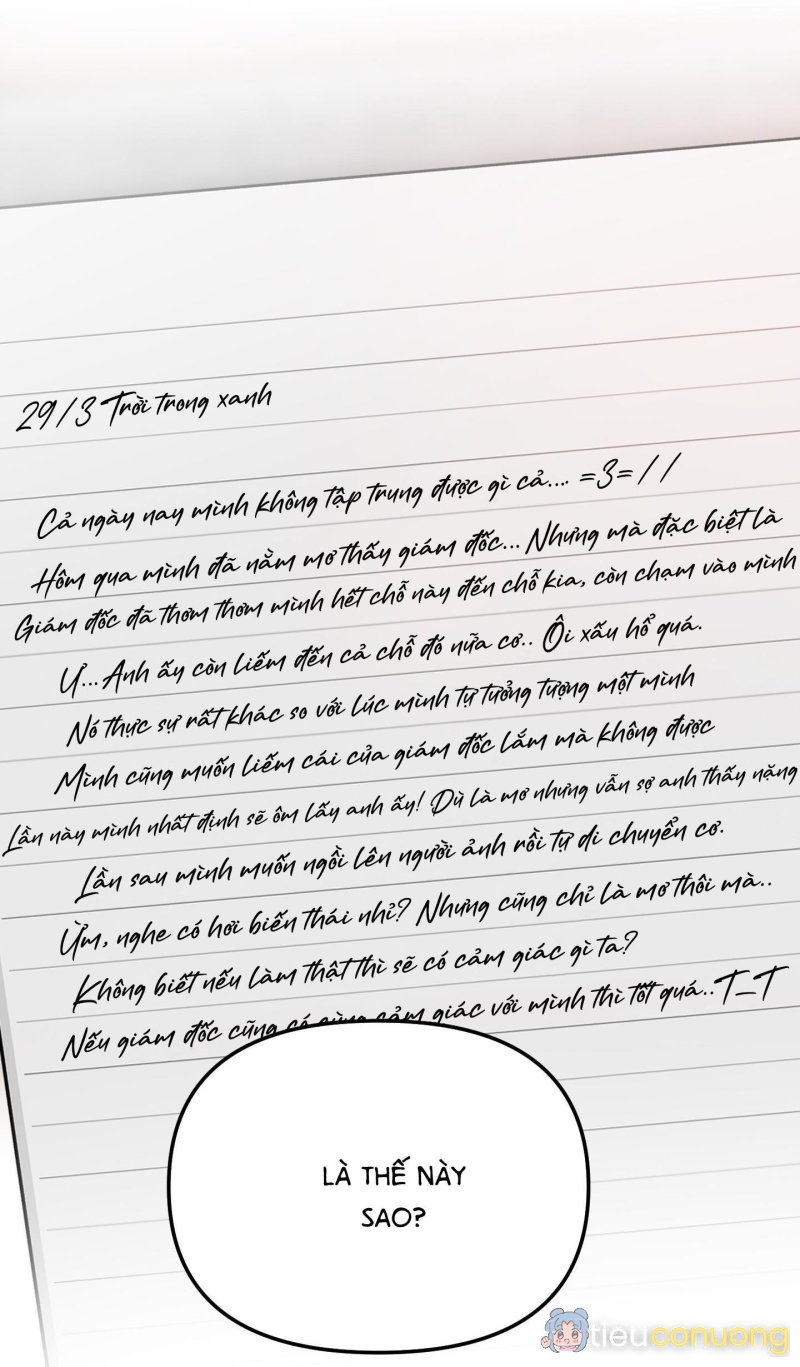 29/3 Trời trong xanh
Cả ngày nay mình không tập trung được gì cả.... =3=//
Hôm qua mình đã nằm mơ thấy giám đốc... Nhưng mà đặc biệt là
Giám đốc đã thơm thơm mình hết chỗ này đến chỗ kia, còn chạm vào mình
Ư...Anh ấy còn liếm đến cả chỗ đó nữa cơ.. Ôi xấu hổ quá.
Nó thực sự rất khác so với lúc mình tự tưởng tượng một mình
Mình cũng muốn liếm cái của giám đốc lắm mà không được
Lần này mình nhất định sẽ ôm lấy anh ấy! Dù là mơ nhưng vẫn sợ anh thấy nặng
Lần sau mình muốn ngồi lên người ảnh rồi tự di chuyển cơ.
Ừm, nghe có hơi biến thái nhỉ? Nhưng cũng chỉ là mơ thôi mà..
Không biết nếu làm thật thì sẽ có cảm giác gì ta?
Nếu giám đốc cũng có cùng cảm giác với mình thì tốt quá..T_T
LÀ THẾ NÀY
SAO?
tieuconuong